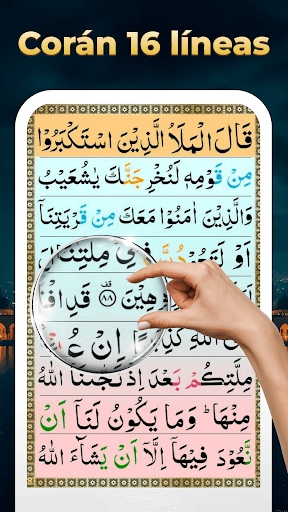 Corán 16 líneas
قَالَ الْمَلَاُ الَّذِيْنَ اسْتَكْبَرُوْا
مِنْ قَوْمِهٖ لَنُخْرِجَنَّكَ يٰشُعَيْبُ
وَالَّذِيْنَ اٰمَنُوْا مَعَكَ مِنْ قَرْيَتِنَاۤ
اَوْ لَتَعُوْدُنَّ فِيْ مِلَّتِنَا
۸۸ قَدِ
اِنْ
مِلَّتِكُمْ بَعْدَ اِذْ نَجّٰىنَا اللّٰهُ
مِنْهَا ؕ وَمَا يَكُوْنُ لَنَاۤ اَنْ
نَّعُوْدَ فِيْهَاۤ اِلَّاۤ اَنْ يَّشَآءَ اللّٰهُ